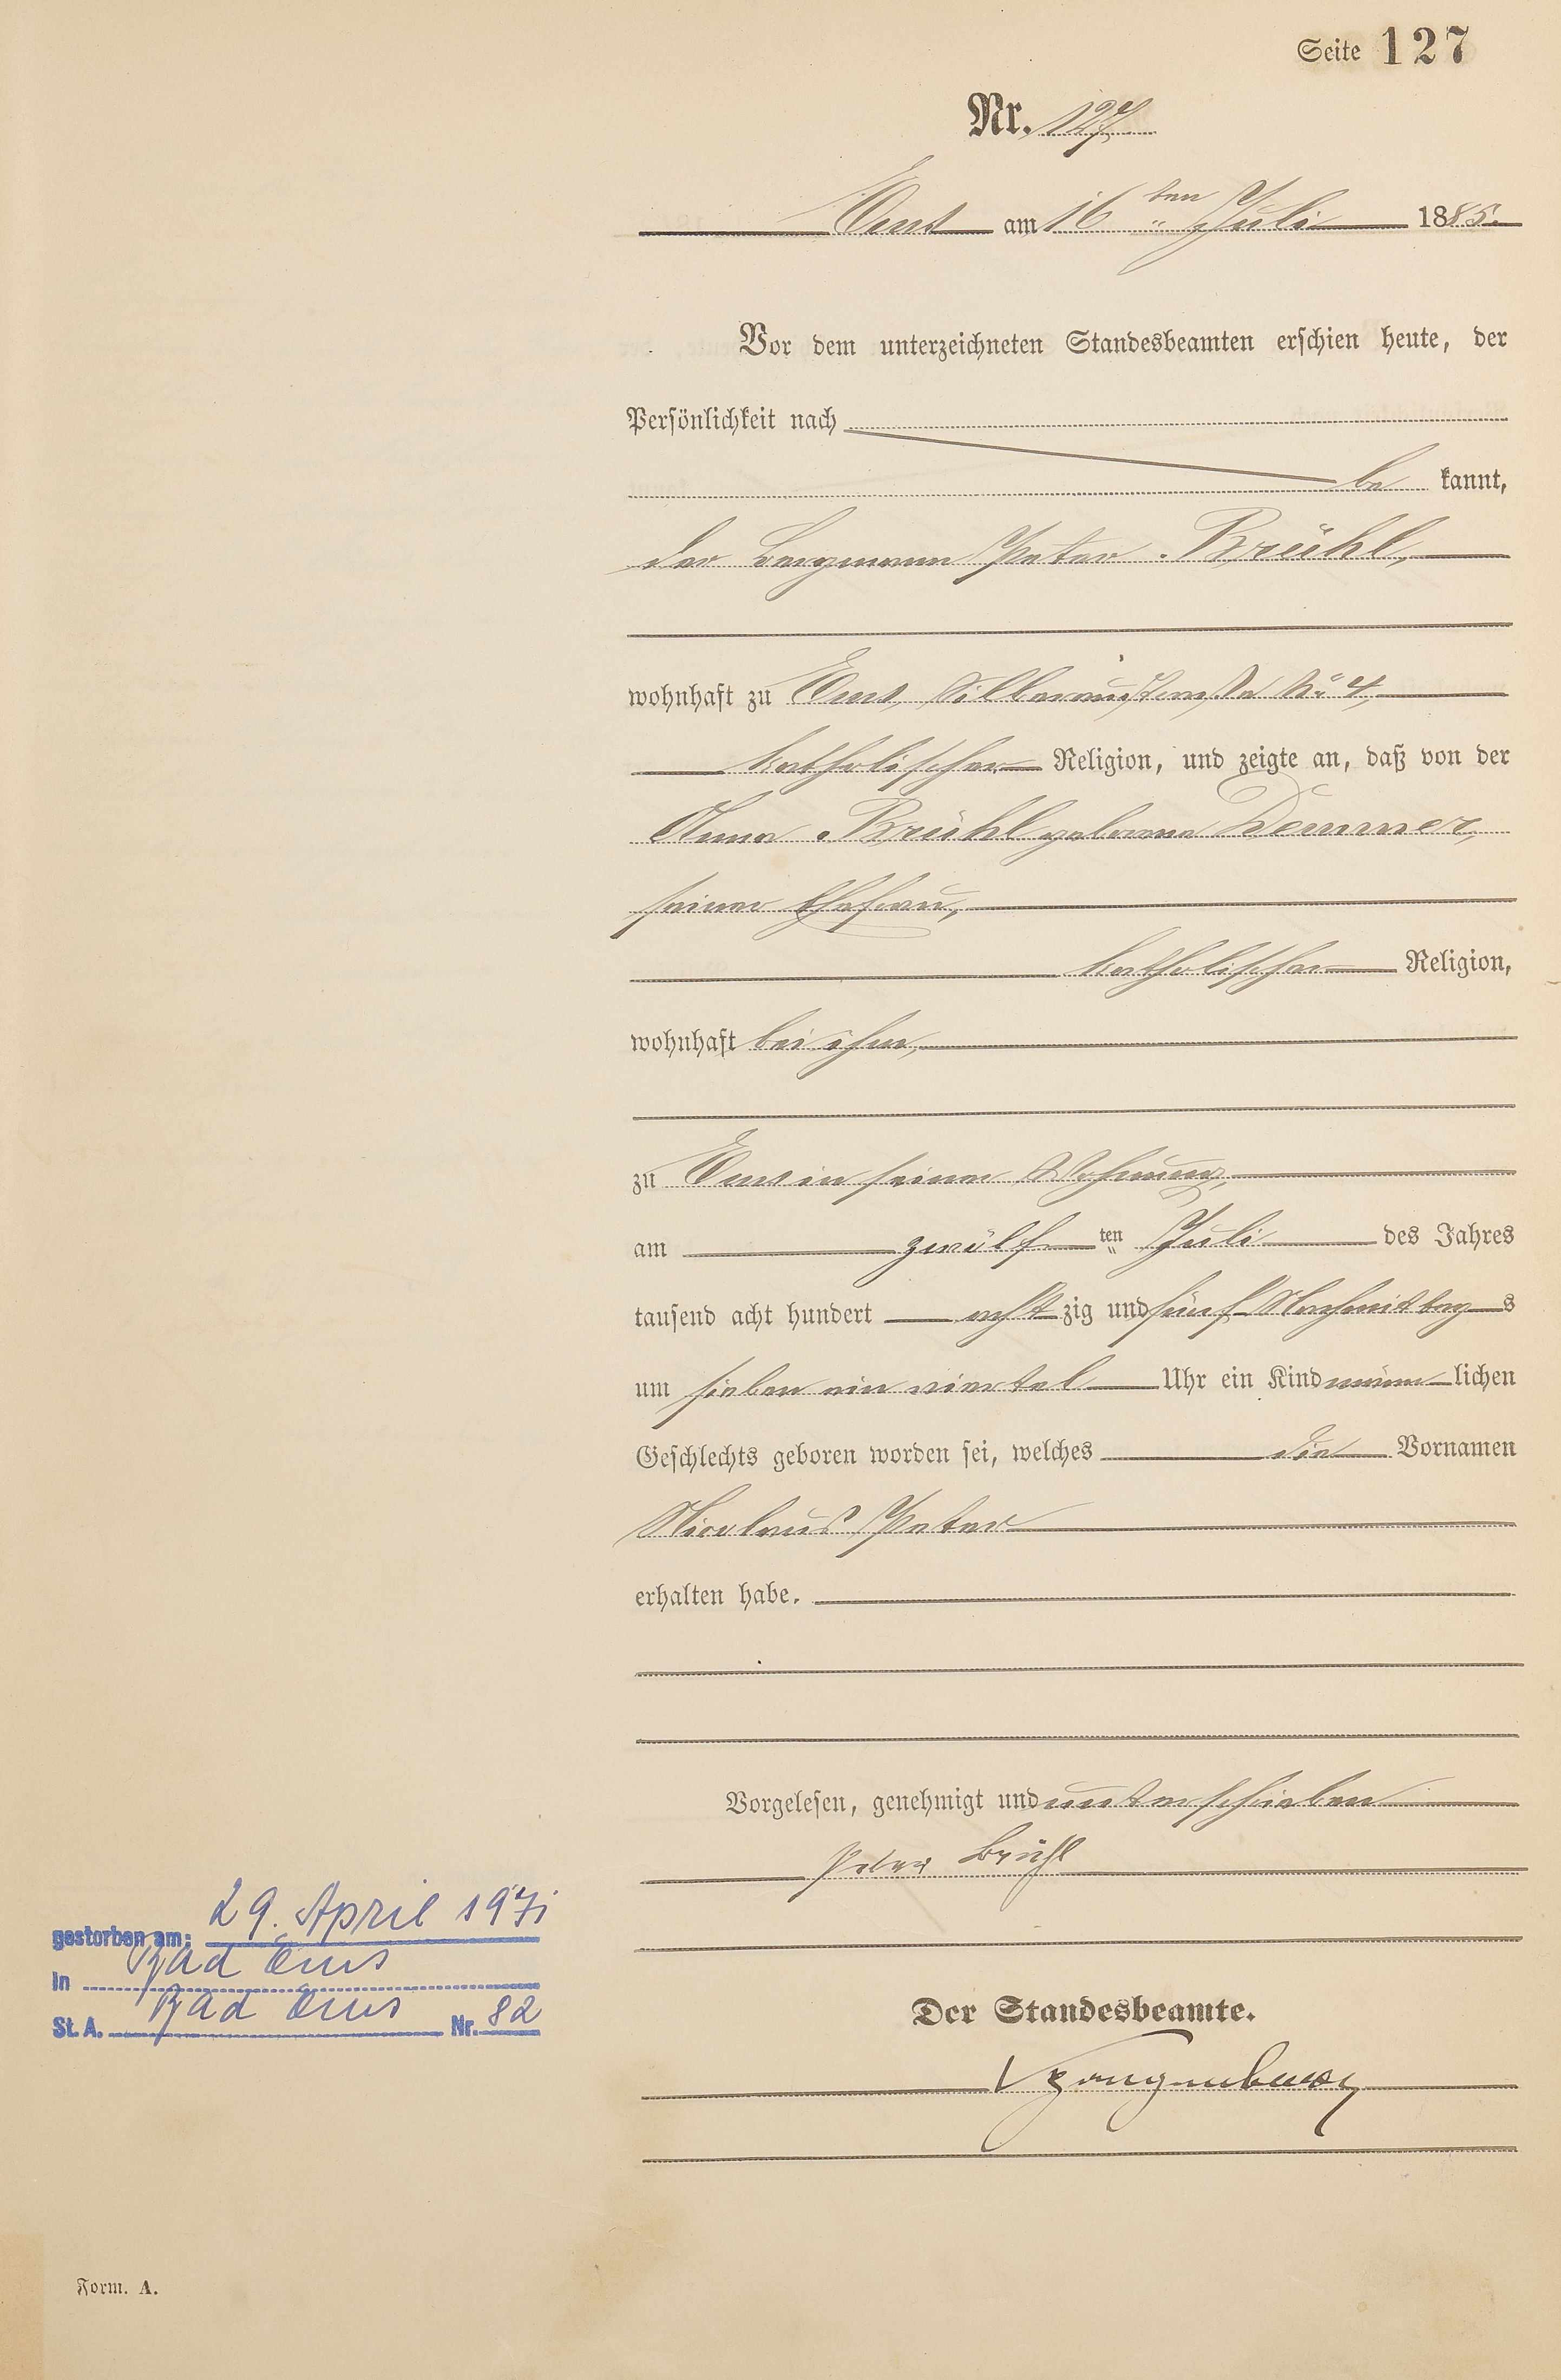 Seite 127
Nr. 127.
Ems am 16ten Juli 1885.
Vor dem unterzeichneten Standesbeamten erschien heute, der
Persönlichkeit nach
be kannt,
der Bergmann Peter Brühl,
wohnhaft zu Ems, Silberaustraße No 4,
katholischer Religion, und zeigte an, daß von der
Anna Brühl geborene Demmer,
seiner Ehefrau,
katholischer Religion,
wohnhaft bei ihm,
zu Ems in seiner Wohnung,
am zwölf ten Juli des Jahres
tausend acht hundert acht zig und fünf Nachmittag s
um sieben ein viertel Uhr ein Kind männ lichen
Geschlechts geboren worden sei, welches die Vornamen
Nicolaus Peter
erhalten habe.
Vorgelesen, genehmigt und unterschrieben
Peter Brühl
gestorben am: 29. April 1971
in Bad Ems
St. A. Bad Ems Nr. 82
Der Standesbeamte.
Form. A.